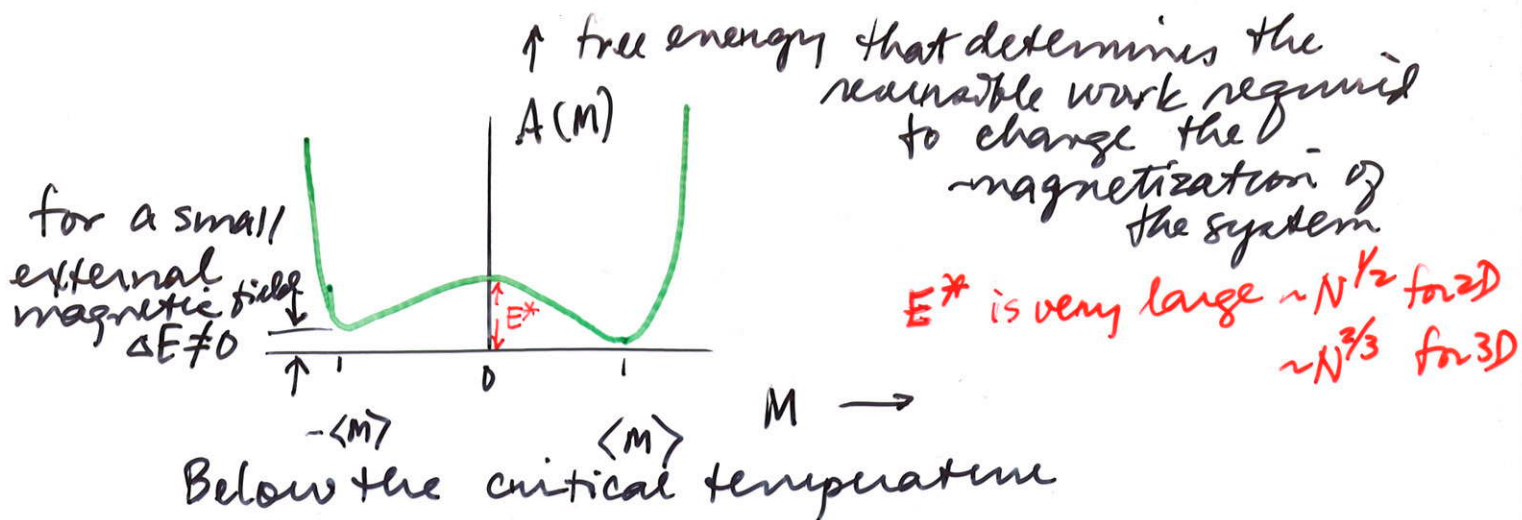 ↑ free energy that determines the
reversible work required
A(M)
to change the
magnetization of
the system
for a small
external
magnetic field
ΔE≠0
E*
E* is very large ~N^1/2 for 2D
~N^2/3 for 3D
1 0 1
M →
-<M> <M>
Below the critical temperature